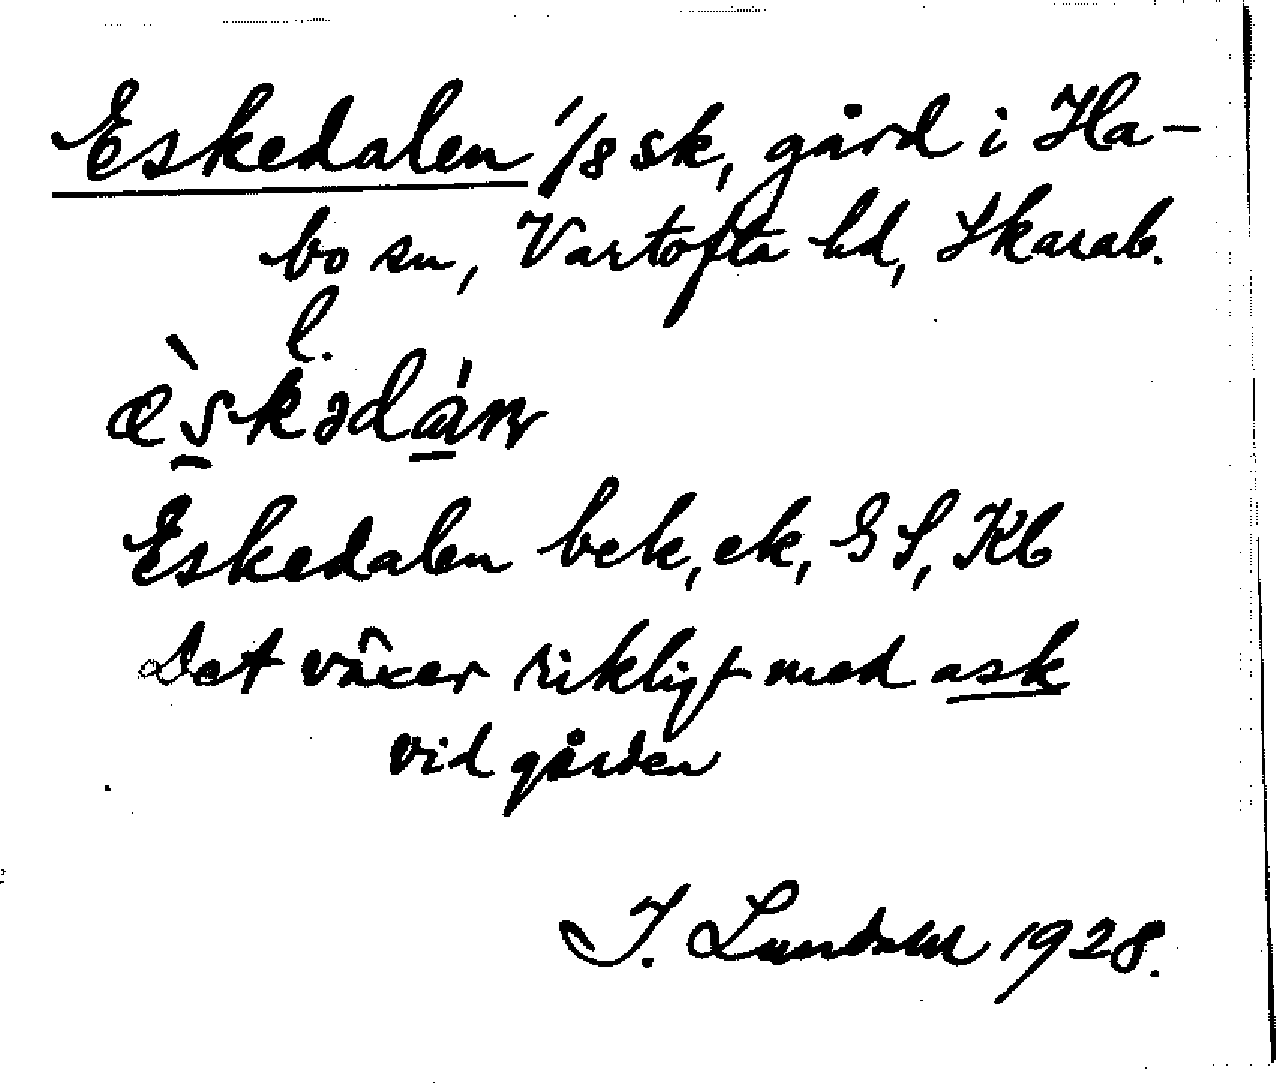 Eskedalen 1/8 sk, gård i Ha-
bo sn, Vartofta hd, Skarab.
l.
èskədán
Eskedalen bek, ek, GS, Kb
Det växer rikligt med ask
vid gården
I. Lundahl 1928.